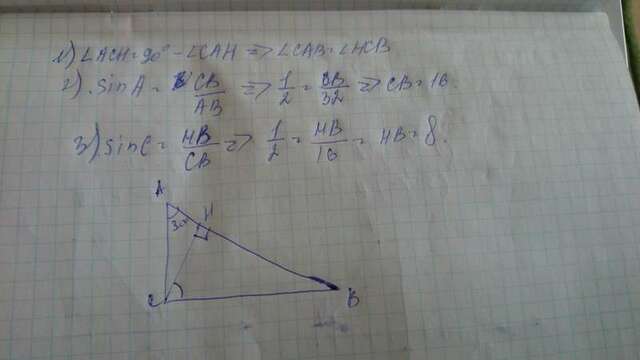 1) ∠ACH = 90° - ∠CAH => ∠CAB = ∠HCB
2) sin A = CB/AB => 1/2 = CB/32 => CB = 16.
3) sin C = HB/CB => 1/2 = HB/16 = HB = 8.
A
30°
H
C
B